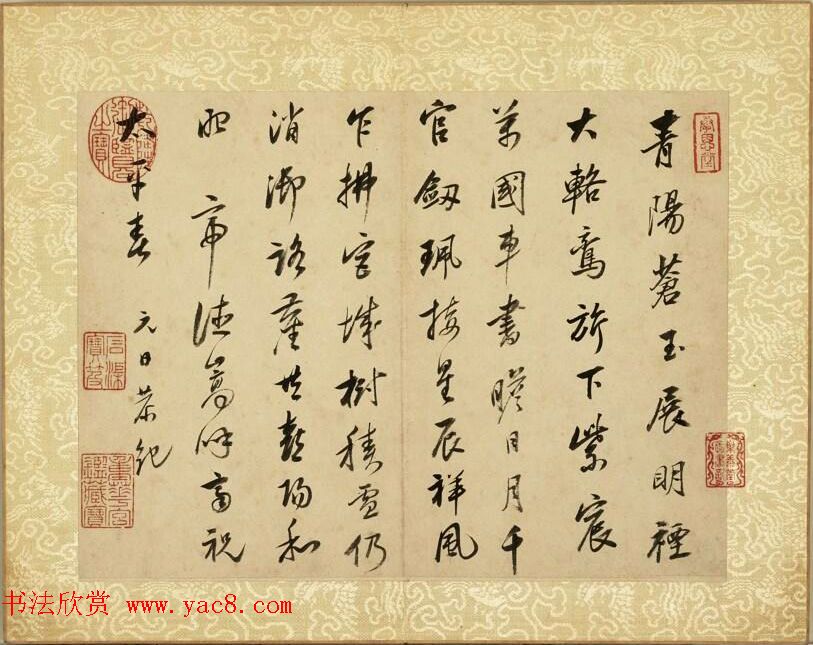 青陽蒼玉展明禋
大輅鸞旂下紫宸
萬國車書瞻日月千
官劔珮接星辰祥風
乍拂宮城樹積雪仍
消御路塵共喜陽和
知帝德嵩呼齊祝
太平春
元日恭紀
石渠寶笈
书法欣赏 www.yac8.com